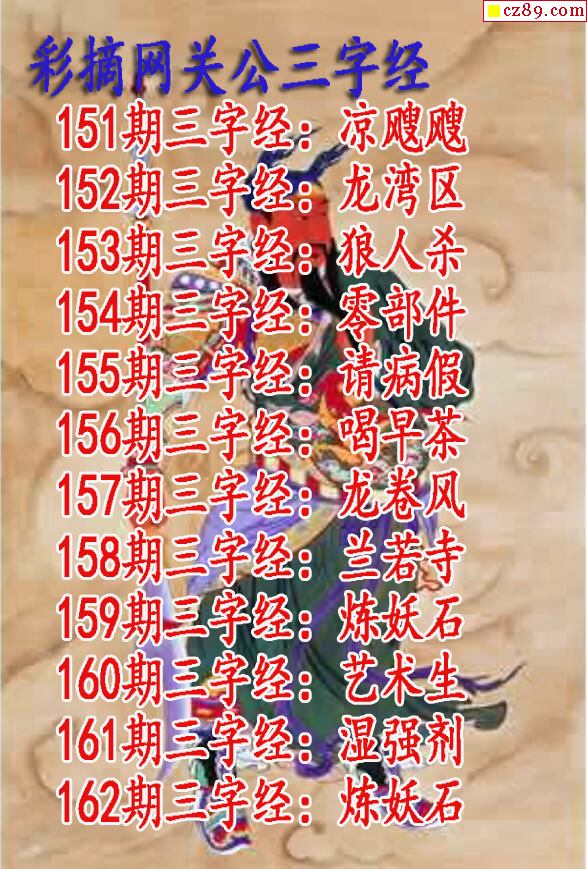 cz89.com
彩摘网关公三字经
151期三字经：凉飕飕
152期三字经：龙湾区
153期三字经：狼人杀
154期三字经：零部件
155期三字经：请病假
156期三字经：喝早茶
157期三字经：龙卷风
158期三字经：兰若寺
159期三字经：炼妖石
160期三字经：艺术生
161期三字经：湿强剂
162期三字经：炼妖石